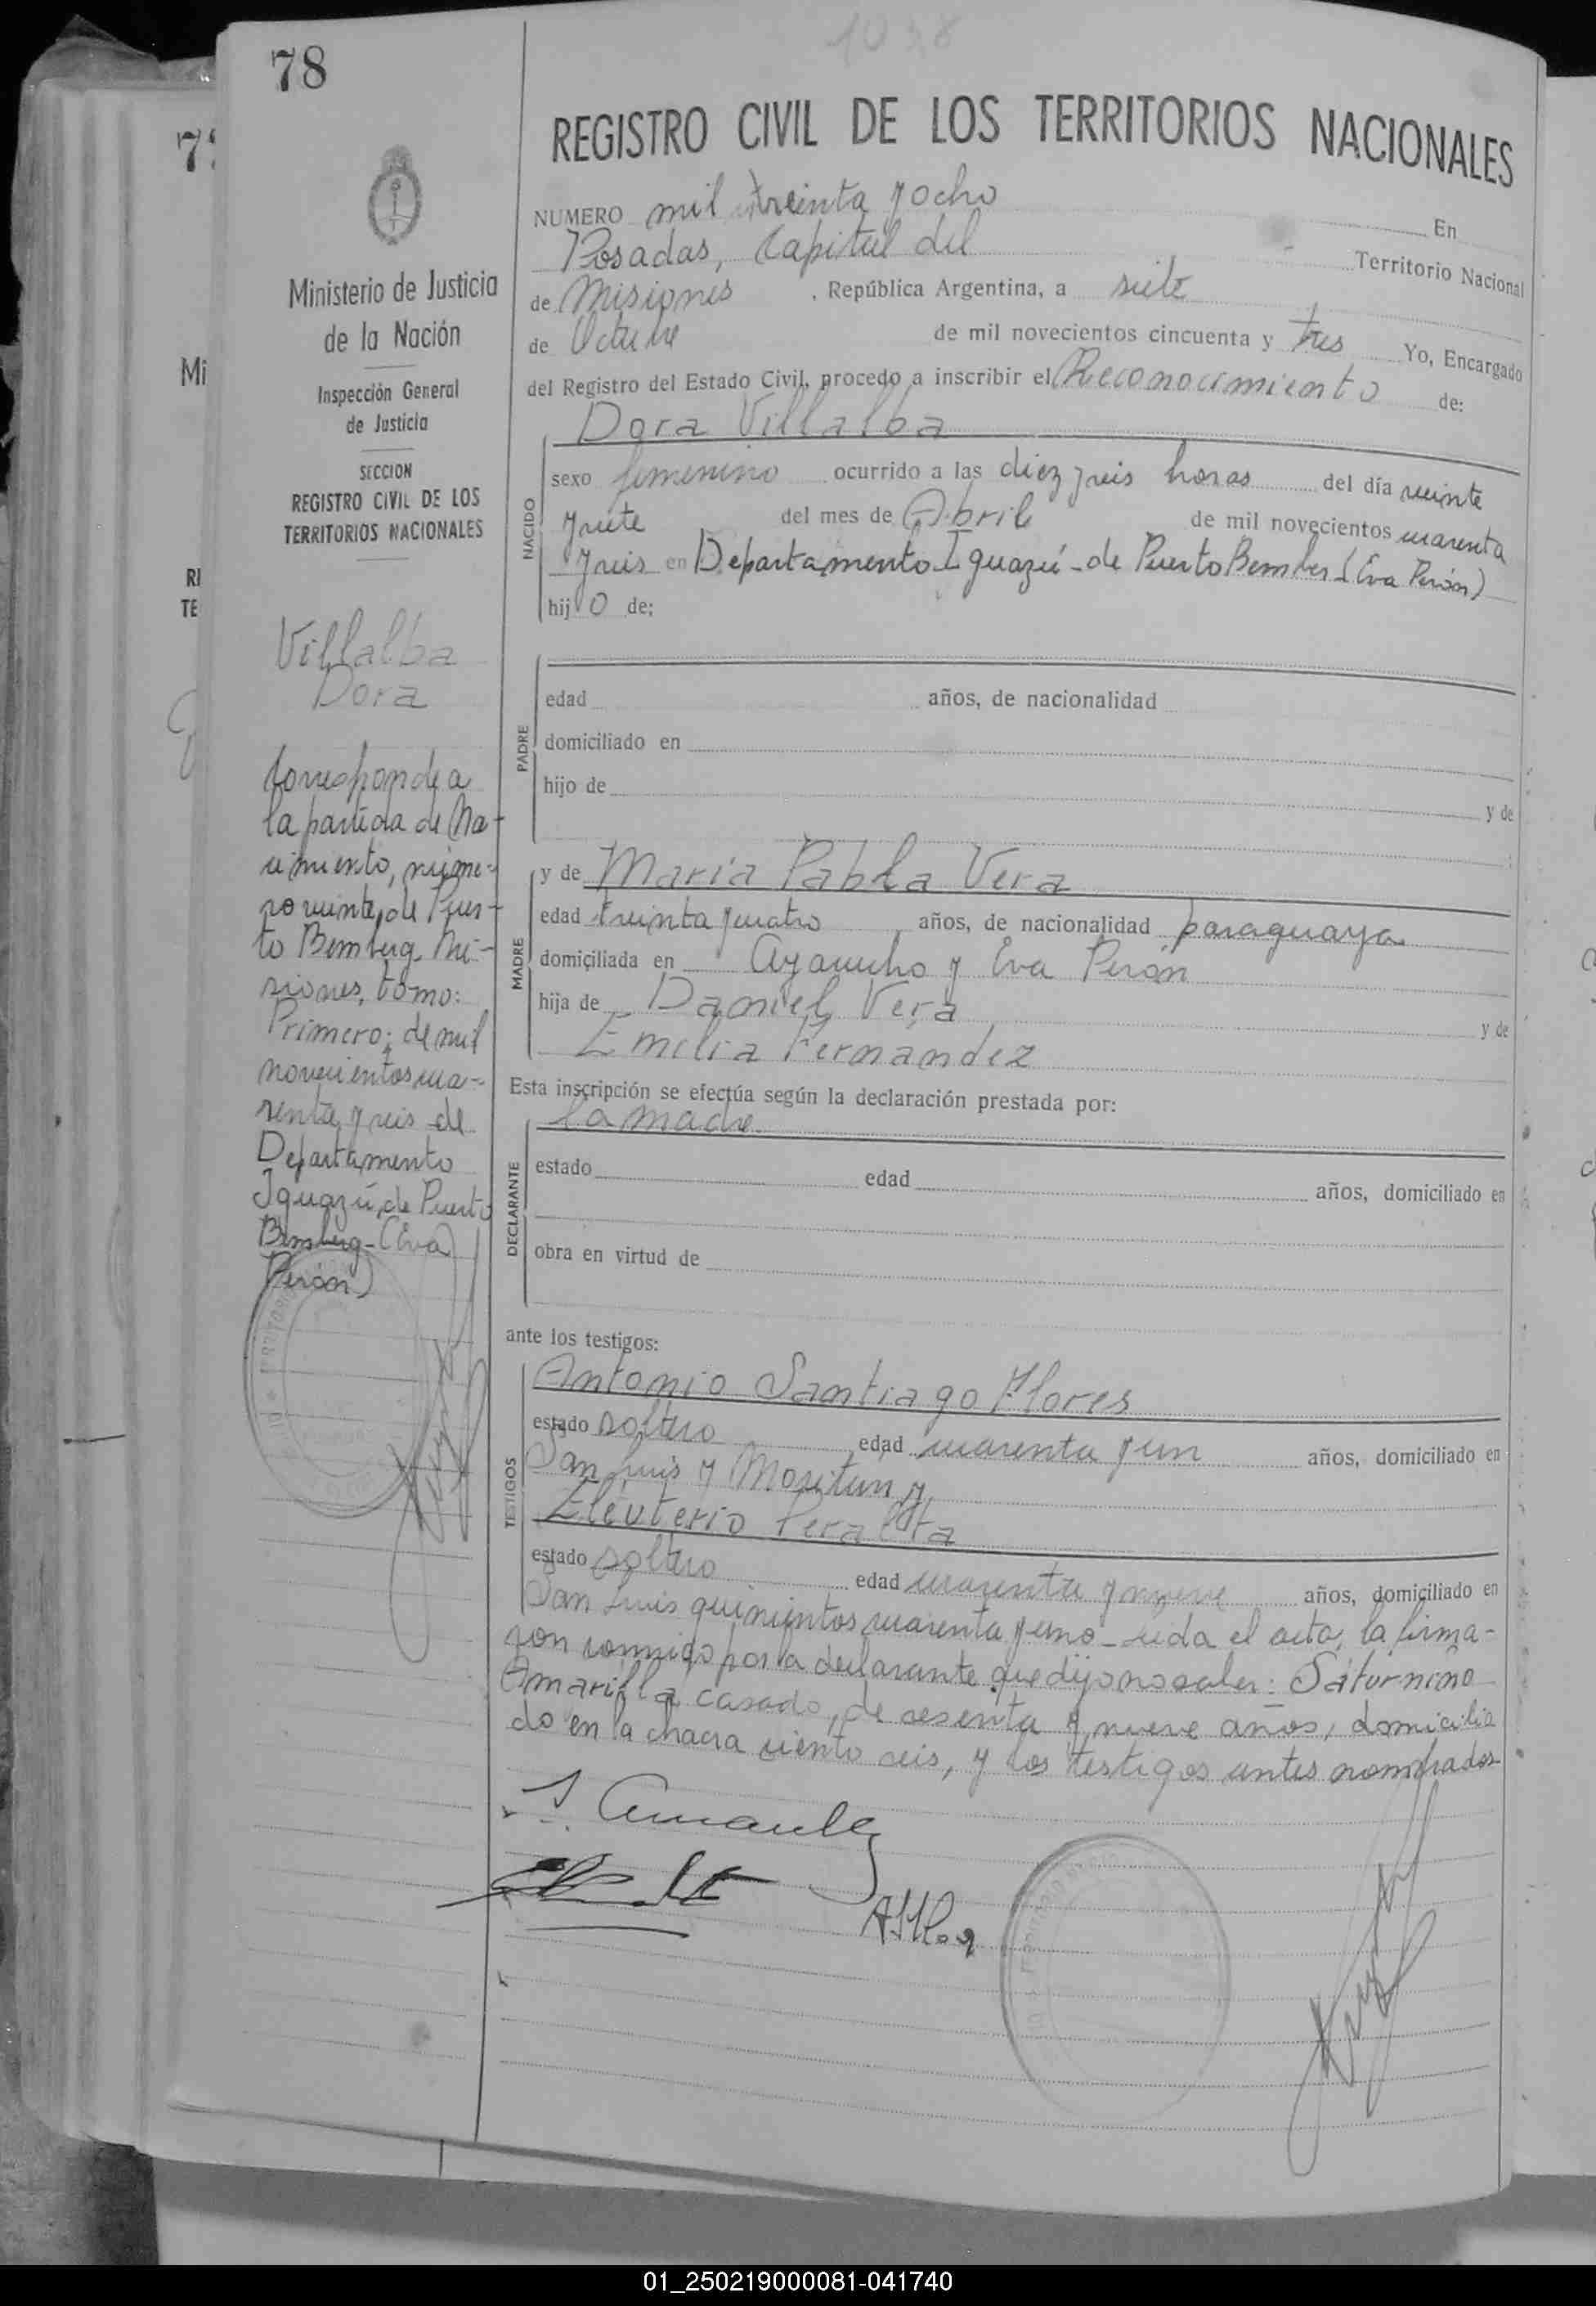 1038
78
REGISTRO CIVIL DE LOS TERRITORIOS NACIONALES
NUMERO mil treinta y ocho En
Posadas, Capital del Territorio Nacional
de Misiones, República Argentina, a siete
de Octubre de mil novecientos cincuenta y tres Yo, Encargado
del Registro del Estado Civil, procedo a inscribir el Reconocimiento de:
Dora Villalba
NACIDO
sexo femenino ocurrido a las diez y seis horas del día veinte
y siete del mes de Abril de mil novecientos cuarenta
y seis en Departamento Iguazú - de Puerto Bemberg (Eva Perón)
hij o de:
PADRE
edad años, de nacionalidad
domiciliado en
hijo de y de
MADRE
y de María Pabla Vera
edad treinta y cuatro años, de nacionalidad paraguaya
domiciliada en Ayacucho y Eva Perón
hija de Daniel Vera y de
Emilia Fernandez
Esta inscripción se efectúa según la declaración prestada por:
la madre
DECLARANTE
estado edad años, domiciliado en
obra en virtud de
ante los testigos:
TESTIGOS
Antonio Santiago Flores
estado soltero edad cuarenta y un años, domiciliado en
San Luis y y
Eleuterio Peralta
estado soltero edad cuarenta y nueve años, domiciliado en
San Luis quinientos cuarenta y uno - Leída el acta, la firma-
ron conmigo por la declarante que dijo no saber: Saturnino
Amarilla casado, de sesenta y nueve años, domicilia
do en la chacra ciento seis, y los testigos antes nombrados
Ministerio de Justicia
de la Nación
Inspección General
de Justicia
SECCION
REGISTRO CIVIL DE LOS
TERRITORIOS NACIONALES
Villalba
Dora
Corresponde a
la partida de Na-
cimiento, núme-
ro veinte, de Puer-
to Bemberg Mi-
siones, tomo:
Primero; de mil
novecientos cua-
renta y seis de
Departamento
Iguazú, de Puerto
Bemberg - (Eva
Perón)
77
Mi
RI
TE
01_250219000081-041740